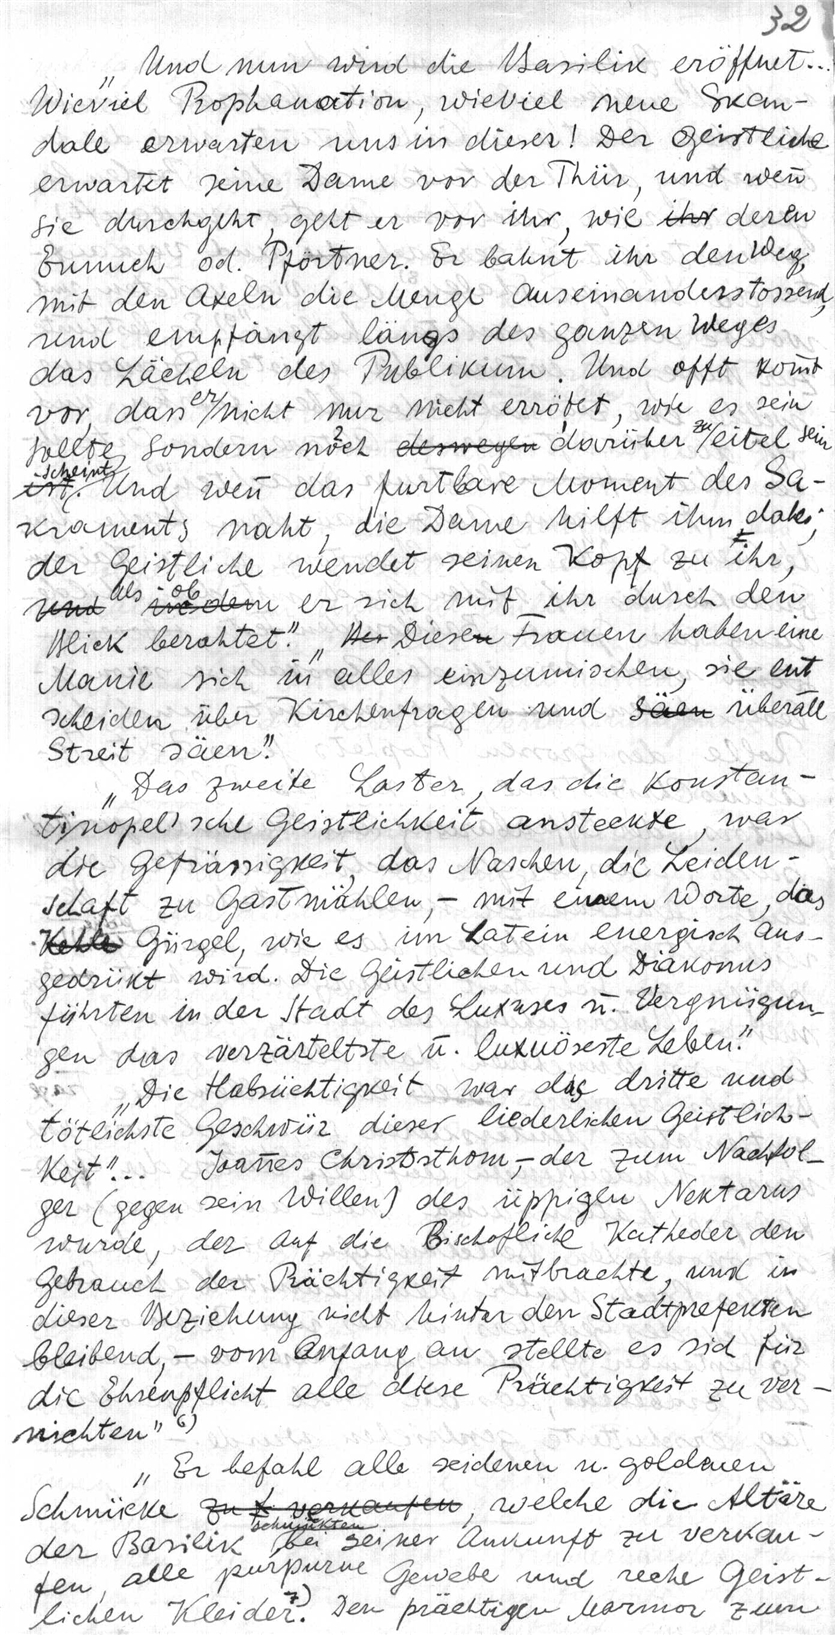 32
„ Und nun wird die Basilik eröffnet...
Wieviel Prophanation, wieviel neue Skan-
dale erwarten uns in dieser! Der Geistliche
erwartet seine Dame vor der Thür, und weñ
sie durchgeht, geht er vor ihr, wie ihr deren
Eunuch od. Pförtner. Er bahnt ihr den Weg,
mit den Axeln die Menge auseinanderstossend,
und empfängt längs des ganzen Weges
das Lächeln des Publikum. Und offt kom̄t
vor, dass er nicht nur nicht errötet, wie es sein
sollte, sondern noch deswegen darüber zu eitel sein
ist scheint. Und weñ das furtbare Moment des Sa-
kraments naht, die Dame hilft ihm dabei;
der Geistliche wendet seinen Kopf zu ihr,
und als indem ob er sich mit ihr durch den
Blick berahtet". „Der Diesen Frauen haben eine
Manie sich in alles einzumischen, sie ent
scheiden über Kirchenfragen und säen überall
Streit säen".
„Das zweite Laster, das die Konstan-
tinopel'sche Geistlichkeit ansteckte, war
die Gefrässigkeit, das Naschen, die Leiden-
schaft zu Gastmählen, – mit einem Worte, das
Kehle Gürgel, wie es im Latein energisch aus-
gedrükt wird. Die Geistlichen und Diakonus
führten in der Stadt des Luxuses u. Vergnügun-
gen das verzärteltste u. luxuöseste Leben".
„Die Habsüchtigkeit war das dritte und
tötlichste Geschwür dieser liederlichen Geistlich-
keit"... Joañes Christsthom, – der zum Nachfol-
ger (gegen sein Willen) des üppigen Nektarus
wurde, der auf die Bischofliche Katheder den
Gebrauch der Prächtigkeit mitbrachte, und in
dieser Beziehung nicht hinter den Stadtprefekten
bleibend, – vom Anfang an stellte es sich für
die Ehrenpflicht alle diese Prächtigkeit zu ver-
nichten" 6)
„ Er befahl alle seidenen u. goldenen
Schmücke zu verkaufen, welche die Altäre
der Basilik schmükten bei seiner Ankunft zu verkau-
fen, alle purpurne Gewebe und reche Geist-
lichen Kleider. 7) Den prächtigen Marmor zum